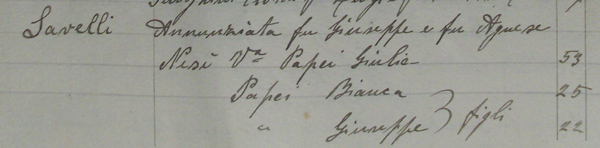 Savelli Annunziata fu Giuseppe e fu Agnese
Nesi Vª Papei Giulio 53
Papei Bianca 25
" Giuseppe } figli 22